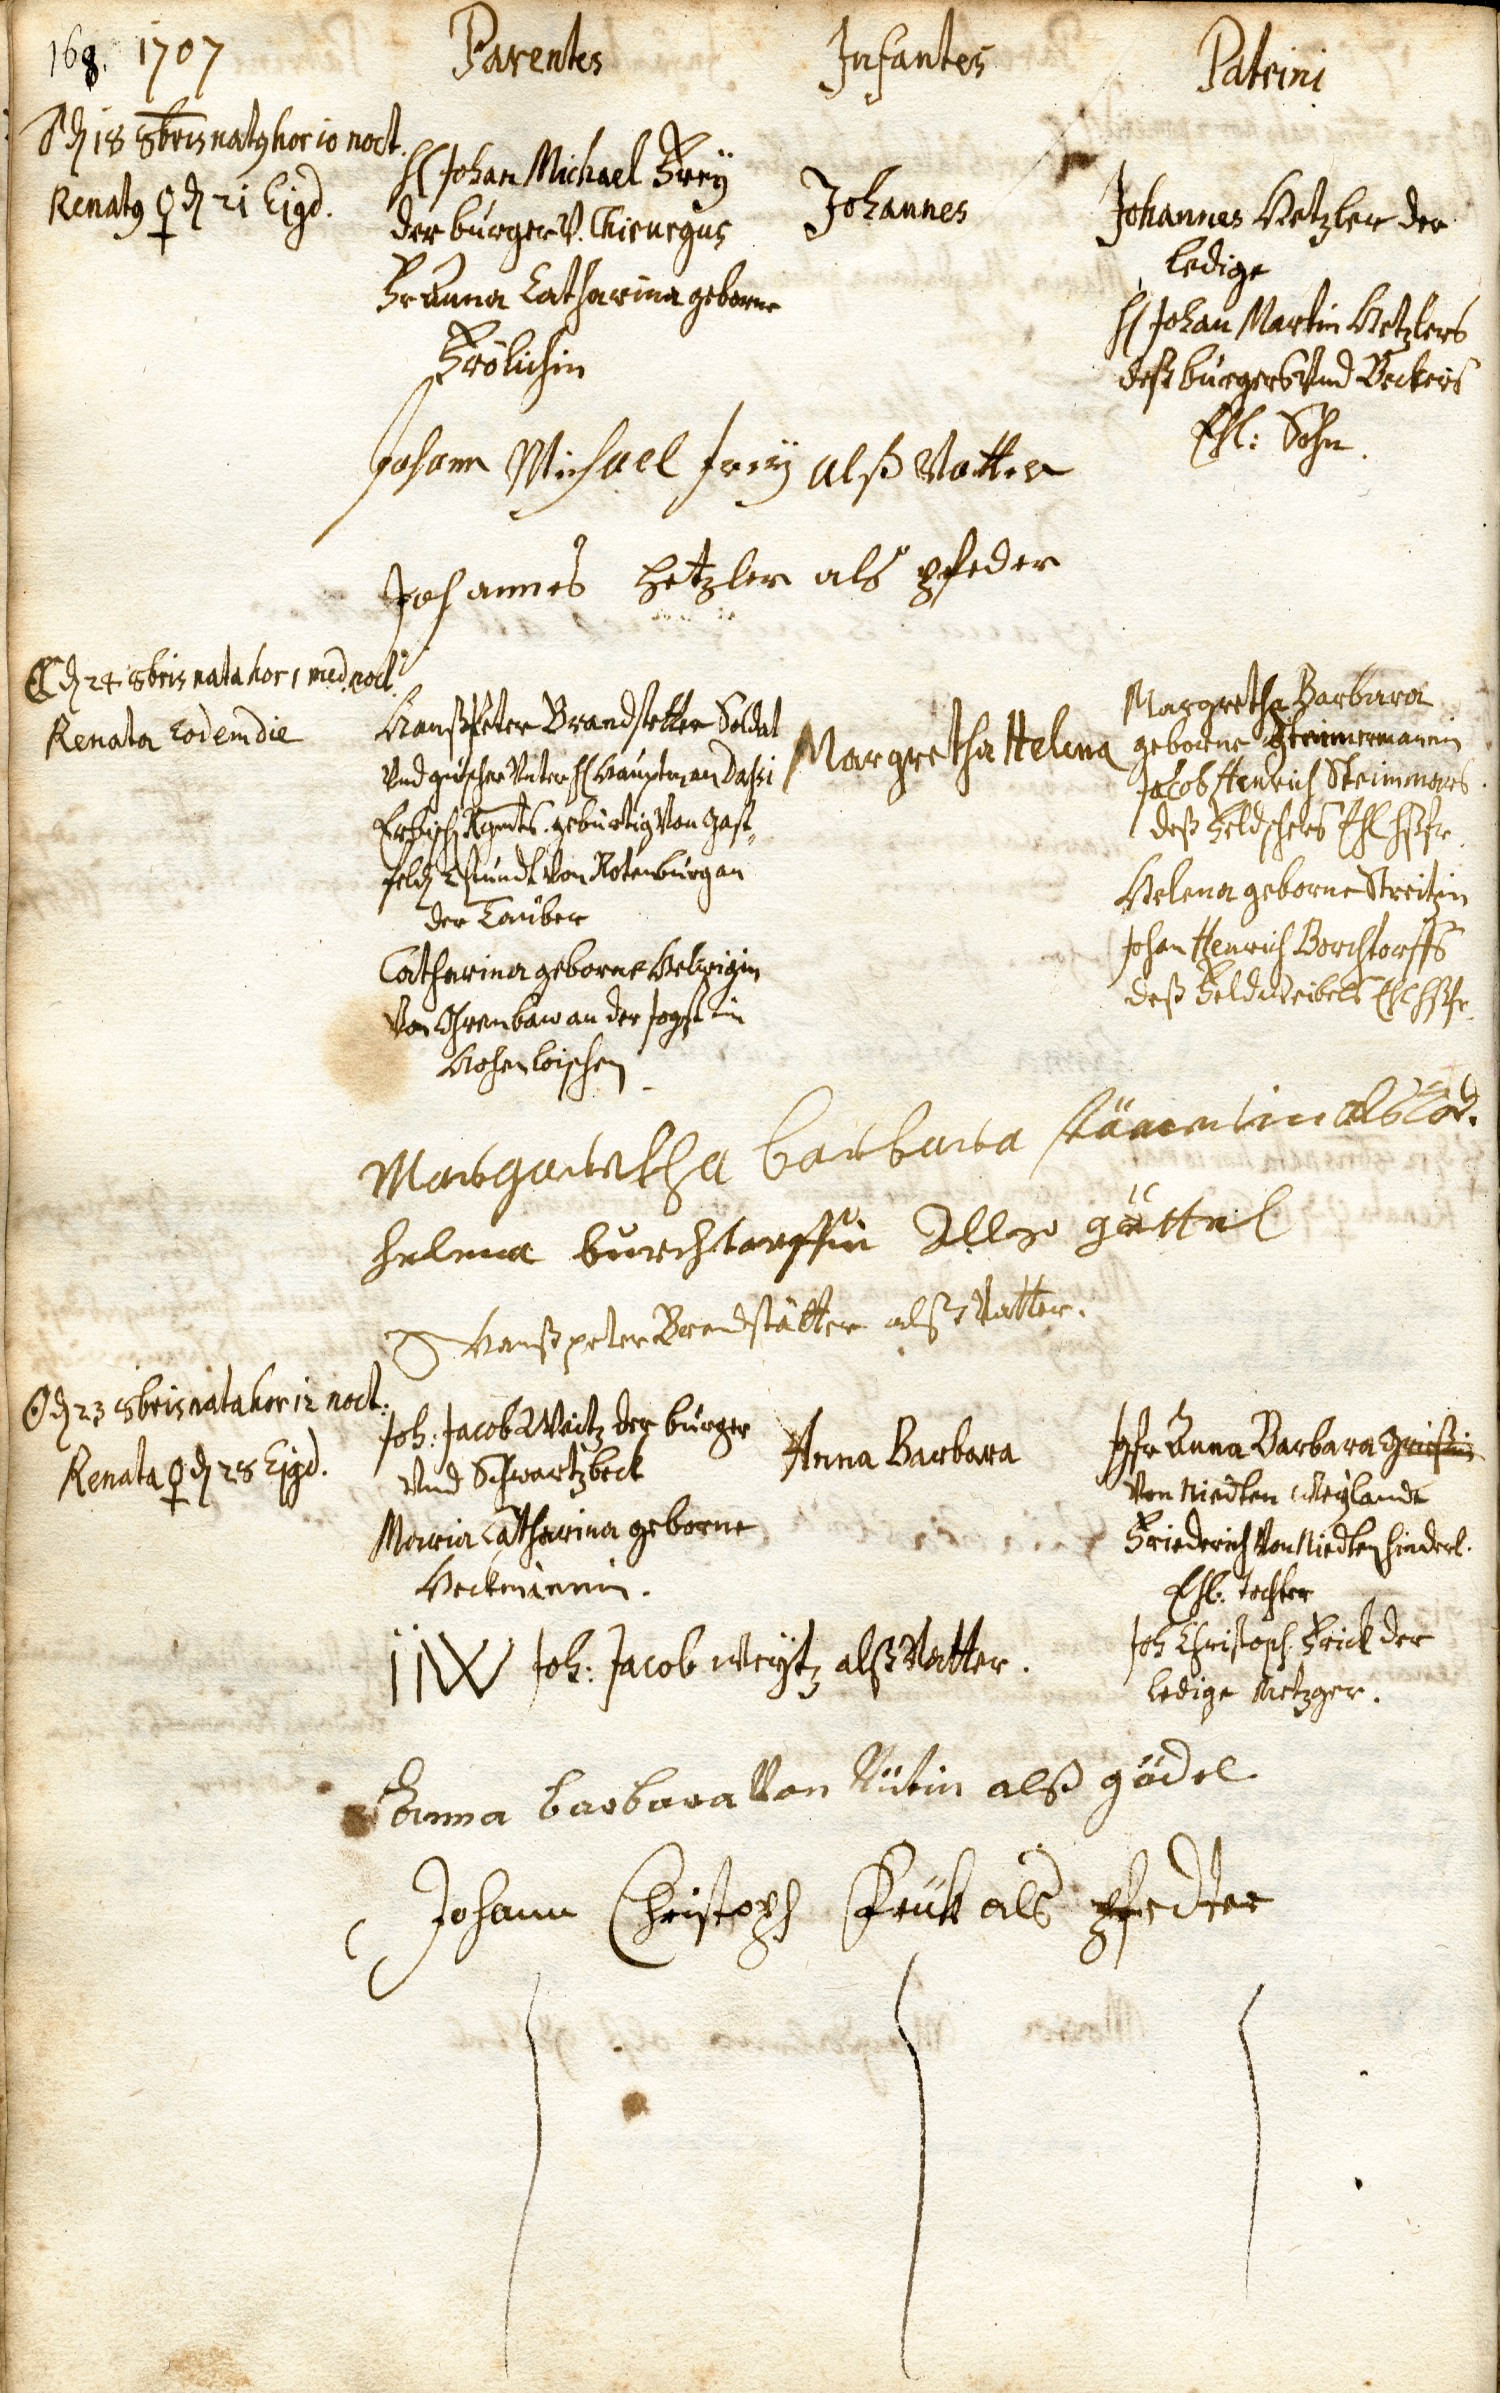 168. 1707
Parentes
Infantes
Patrini
♂ d 18 8bris natg hor 10 noct.
Renatg ♀ d 21 Ejgd.
H Johan Michael Frey
der burger V. Chirurgus
Fr Anna Catharina geborne
Frölichin
Johannes
Johannes Hetzler der
ledige
H Johan Martin Hetzlers
deß burgers Vnd Beckers
Ehl: Sohn.
Johann Michael frey alß Vatter
Johannes Hetzler als pfeder
☾ d 24 8bris nata hor 1 med. noct.
Renata eodem die
Hanß Peter Brandstetter Soldat
Vnter H Hauptman
Rgmts. gebürtig Von Gast
feld 2 stundt Von Rotenburg an
der Tauber
Catharina geborne
Von an der Jagst im
Hohenloischen
Margretha Helena
Margretha Barbara
geborne
Jacob Henrich Steinmars
deß Feldschers Ehl. hßfr.
Helena geborne Streitzin
Johan Henrich Borchtorffs
deß Feldweibels Ehl hßfr.
Margaretha barbara
helena burchtorffin göttel
Hanß peter Brandstätter alß Vatter.
☉ d 23 8bris nata hor 12 noct.
Renata ♀ d 28 Ejgd.
Joh: Jacob Weitz der burger
Vnd Schwartzbeck
Maria Catharina geborne
Heckmännin.
Anna Barbara
Jgfr Anna Barbara
Von Niedten Weylandt
Friederich Von Niedten hinderl.
Ehl: tochter
Joh Christoph Frick der
ledige Metzger.
IIW Joh: Jacob Weytz alß Vatter.
Anna barbara Von Nütin alß gödel
Johann Christoph Frük als pfedter